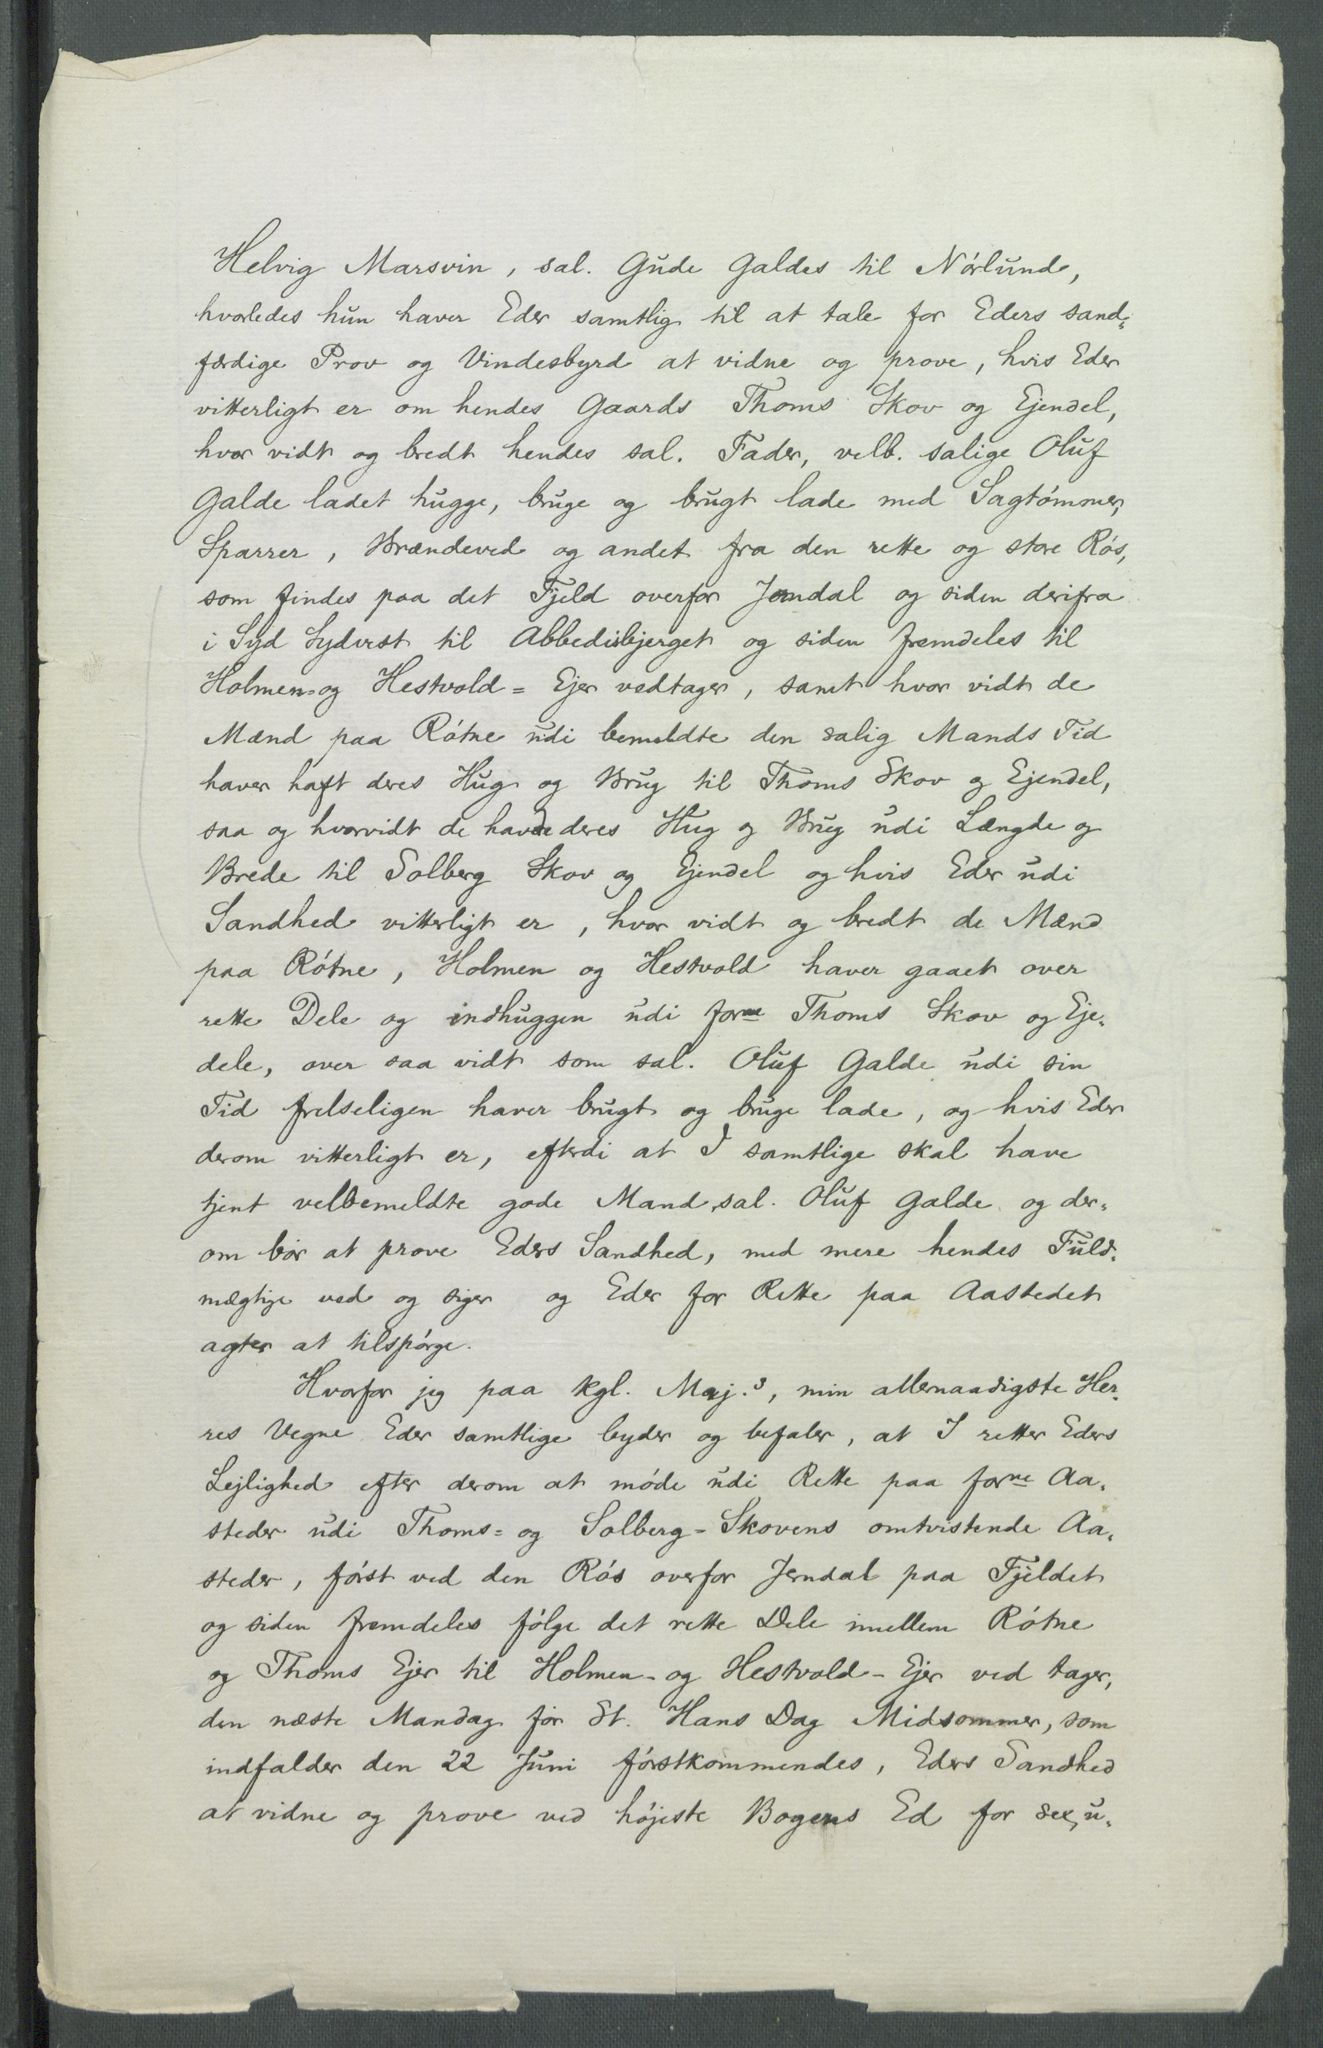 Helvig Marsvin, sal. Gude Galdes til Nórlund,
hvorledes hun haver Eder samtlig til at tale for Eders sand=
færdige Prov og Vindesbyrd at vidne og prove, hvis Eder
vitterligt er om hendes Gaards Thoms Skov og Ejendel,
hvor vidt og bredt hendes sal. Fader, velb. salige Oluf
Galde ladet hugge, bruge og brugt lade med Sagtómmer,
Sparrer, Brændeved og andet fra den rette og store Rós,
som findes paa det Fjeld overfor Jerndal og siden derifra
i Syd Sydvest til Abbedisbjerget og siden fremdeles til
Holmen=og Hestvold= Ejer vedtager, samt hvor vidt de
Mænd paa Rótne udi bemeldte den salig Mands Tid
haver haft deres Hug og Brug til Thoms Skov og Ejendel,
saa og hvorvidt de havde deres Hug og Brug udi Længde og
Brede til Solberg Skov og Ejendel og hvis Eder udi
Sandhed vitterligt er, hvor vidt og bredt de Mænd
paa Rótne, Holmen og Hestvold haver gaaet over
rette Dele og indhuggen udi forne Thoms Skov og Eje=
dele, over saa vidt som sal. Oluf Galde udi sin
Tid frelseligen haver brugt og bruge lade, og hvis Eder
derom vitterligt er, efterdi at I samtlige skal have
tjent velbemeldte gode Mand, sal. Oluf Galde og der=
om bór at prove Eders Sandhed, med mere hendes Fuld=
mægtige ved og siger og Eder for Rette paa Aastedet
agter at tilspórge.
Hvorfor jeg paa Kgl. Maj.s, min allernaadigste Her=
res Vegne Eder samtlige byder og befaler, at I retter Eders
Lejlighed efter derom at móde udi Rette paa forne Aa=
steder udi Thoms= og Solberg-Skovens omtvistende Aa=
steder, fórst ved den Rós overfor Jerndal paa Fjeldet
og siden fremdeles fólge det rette Dele imellem Rótne
og Thoms Ejer til Holmen- og Hestvold- Ejer ved tager,
den næste Mandag fór St. Hans Dag Midsommer, som
indfalder den 22 Juni fórstkommendes, Eders Sandhed
at vidne og prove ved hójeste Bogens Ed for sex, u=